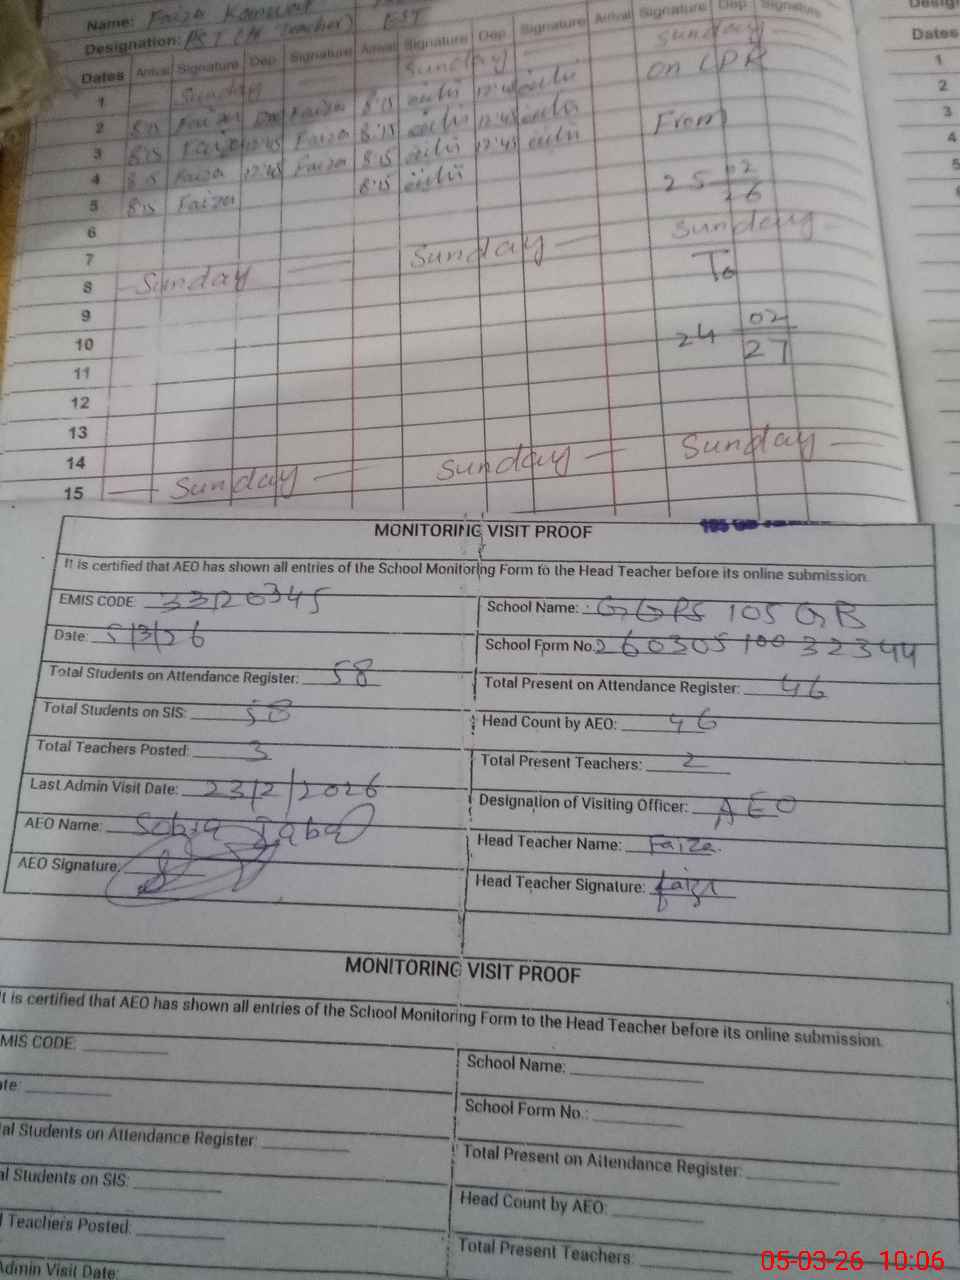 Name: Faiza Kanwal
Designation: PST (H Teacher) EST
Dates Arrival Signature Dep. Signature Arrival Signature Dep. Signature Arrival Signature Dep Signature
Dates
1 Sunday Sunday Sunday
1
2 8:15 Faiza Faiza 8:15 12:45 on CPR
2
3 8:15 Faiza 12:45 Faiza 8:15 12:45
3
4 8:15 Faiza 12:45 Faiza 8:15 12:45 From
4
5 8:15 Faiza 8:15
5
6 25 02
26
7 Sunday
8 Sunday Sunday To
9
10 24 02
27
11
12
13
14
15 Sunday Sunday Sunday
MONITORING VISIT PROOF
It is certified that AEO has shown all entries of the School Monitoring Form to the Head Teacher before its online submission.
EMIS CODE: 33120345 School Name: GGPS 105 GB
Date: 5/3/26 School Form No. 26030510032344
Total Students on Attendance Register: 58 Total Present on Attendance Register: 46
Total Students on SIS: 58 Head Count by AEO: 46
Total Teachers Posted: 3 Total Present Teachers: 2
Last Admin Visit Date: 23/2/2026 Designation of Visiting Officer: AEO
AEO Name: Sobia Head Teacher Name: Faiza.
AEO Signature: Head Teacher Signature: faiza
MONITORING VISIT PROOF
It is certified that AEO has shown all entries of the School Monitoring Form to the Head Teacher before its online submission.
MIS CODE: School Name:
ate: School Form No.:
al Students on Attendance Register: Total Present on Attendance Register:
al Students on SIS: Head Count by AEO:
l Teachers Posted: Total Present Teachers:
Admin Visit Date:
05-03-26 10:06